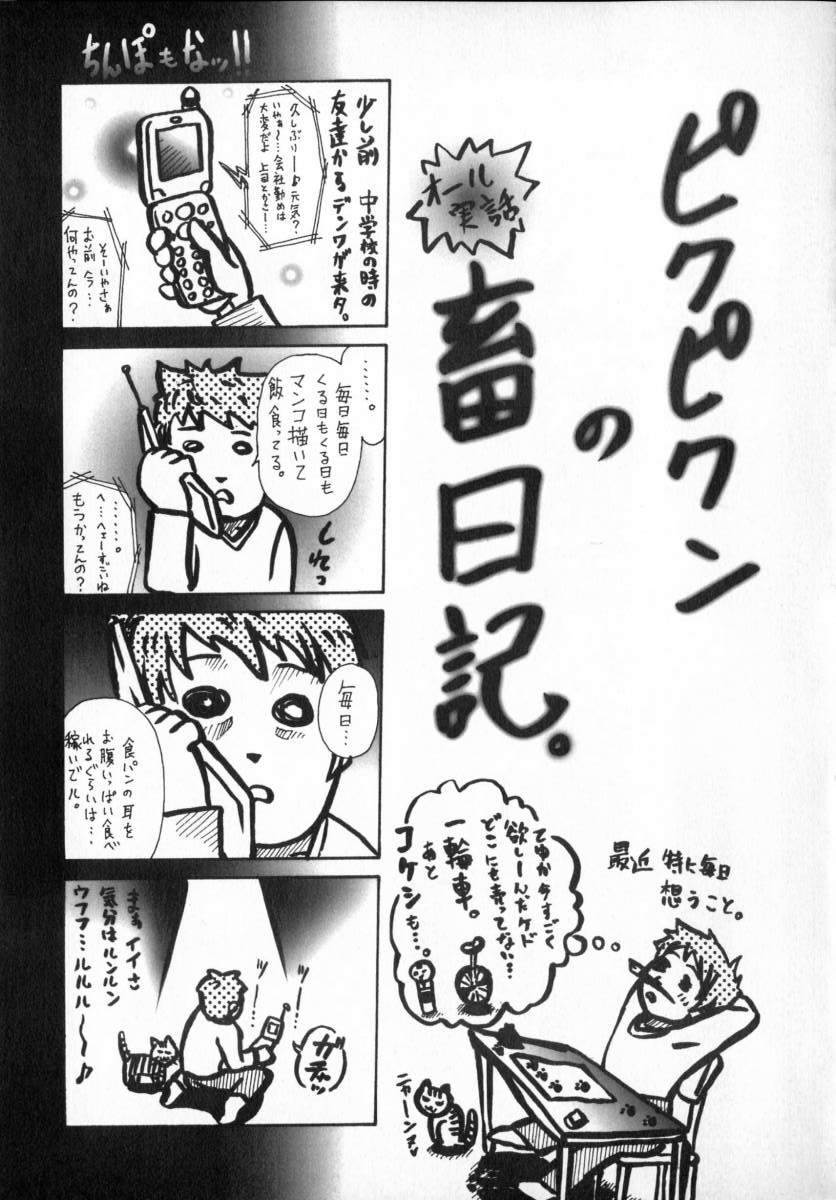 ピクピクン
の
畜日記。
オール
実話
ちんぽもなッ!!
少し前 中学校の時の
友達からデンワが来タ。
久しぶりー♪元気?
いやぁ〜…会社勤めは
大変だよ 上司とかさー…
そーいやさぁ
お前 今…
何やってんの?
……。
毎日毎日
くる日もくる日も
マンコ描いて
飯食ってる。
……。
へ…ヘェーすごいね
もうかってんの?
毎日…
食パンの耳を
お腹いっぱい食べ
れるぐらいは…
稼いでル。
まぁ イイさ
気分はルンルン
ウフフ…ルルル〜〜♪
ツー
ツー
ガチャッ
最近 特に毎日
想うこと。
てゆか今すごく
欲しーんだケド
どこにも売ってない…
一輪車。
あと
コケシも…。
ニャーン